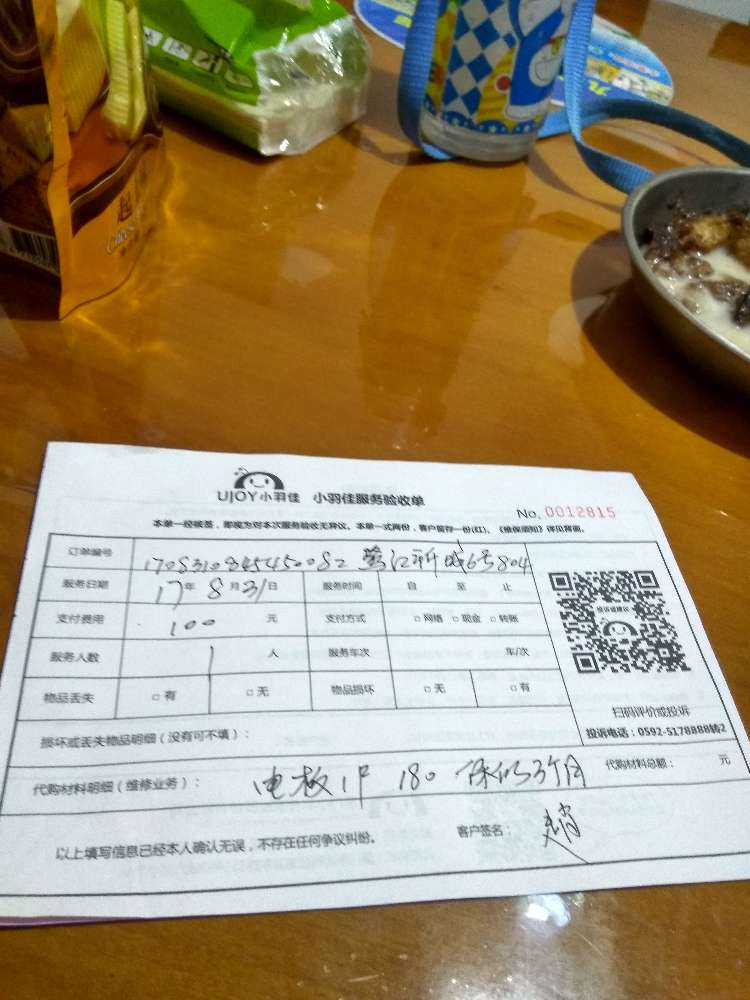 起
UJOY小羽佳 小羽佳服务验收单
No. 0012815
本单一经核签，即视为对本次服务验收无异议。本单一式两份，客户留存一份(红)。《维保须知》详见背面。
订单编号 1708310845450082 鹭江新城6号804
服务日期 17年 8月31日 服务时间 自 至 止
支付费用 100 元 支付方式 □网络 □现金 □转账
服务人数 1 人 服务车次 车/次
物品丢失 □有 □无 物品损坏 □无 □有
扫码评价或投诉
投诉电话：0592-5178888转2
损坏或丢失物品明细（没有可不填）：
代购材料明细（维修业务）： 电板1P 180 保修3个月 代购材料总额： 元
以上填写信息已经本人确认无误，不存在任何争议纠纷。 客户签名：